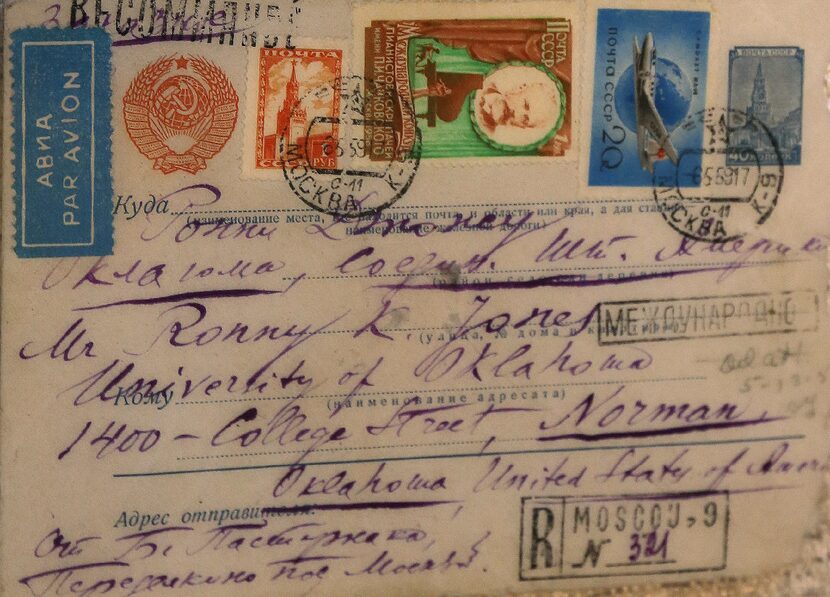 Заказное
RECOMMANDÉ
АВИА
PAR AVION
ПОЧТА
СССР РУБ
II МЕЖДУНАРОДНЫЙ
ПОЧТА СССР
ПОЧТА СССР 20
ПОЧТА СССР
40 КОПЕЕК
МОСКВА
С-11
К-9
655917
МОСКВА
С-11
К-9
Куда
(наименование места, где находится почта, и области или края, а для станций
наименование железной дороги)
Ронни
Оклагома, Соедин. Шт. Америки
Mr Ronny K. Jones
(улица, № дома и квартиры)
МЕЖДУНАРОДНО
University of Oklahoma
Кому
(наименование адресата)
1400 – College Street, Norman,
Oklahoma, United States of America
Адрес отправителя:
От Б. Пастернака,
Переделкино под Москвой.
R MOSCOU, 9
N 321